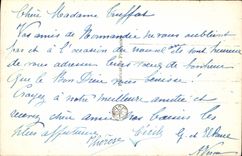 Chère Madame Truffat
Vos amis de Normandie ne vous oublient
pas et à l'occasion du nouvel an ils sont heureux
de vous adresser leurs vœux de bonheur
Que le Bon Dieu vous bénisse!
Croyez à notre meilleure amitié et
recevez chère amie nos baisers les
plus affectueux
Thérèse Cécile G. et